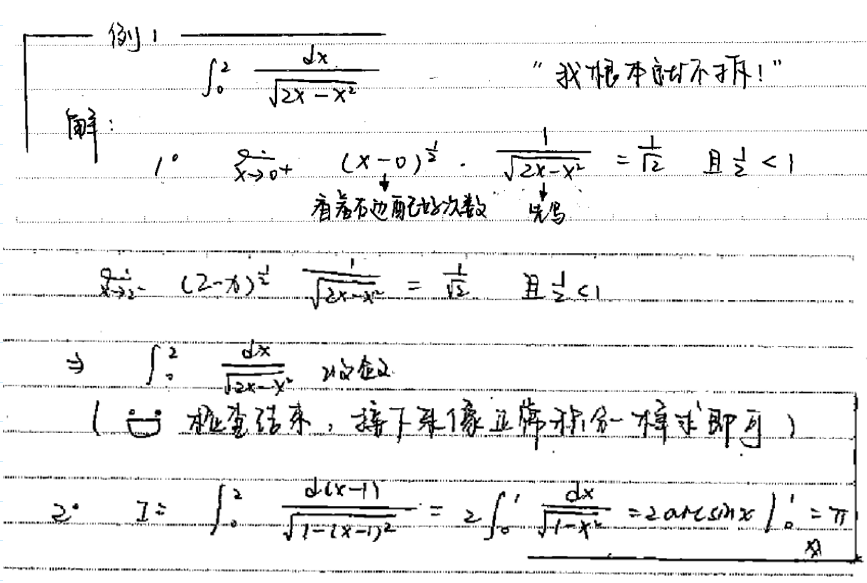 例1
∫₀² dx/√(2x-x²) "我根本就不拆!"
解:
1° lim x→0⁺ (x-0)^(1/2) · 1/√(2x-x²) = 1/√2 且 1/2 < 1
看着右边配好次数 先写
lim x→2⁻ (2-x)^(1/2) 1/√(2x-x²) = 1/√2 且 1/2 < 1
⇒ ∫₀² dx/√(2x-x²) 收敛
( 检查结束, 接下来像正常积分一样求即可 )
2° I = ∫₀² d(x-1)/√(1-(x-1)²) = 2∫₀¹ dx/√(1-x²) = 2arcsinx |₀¹ = π